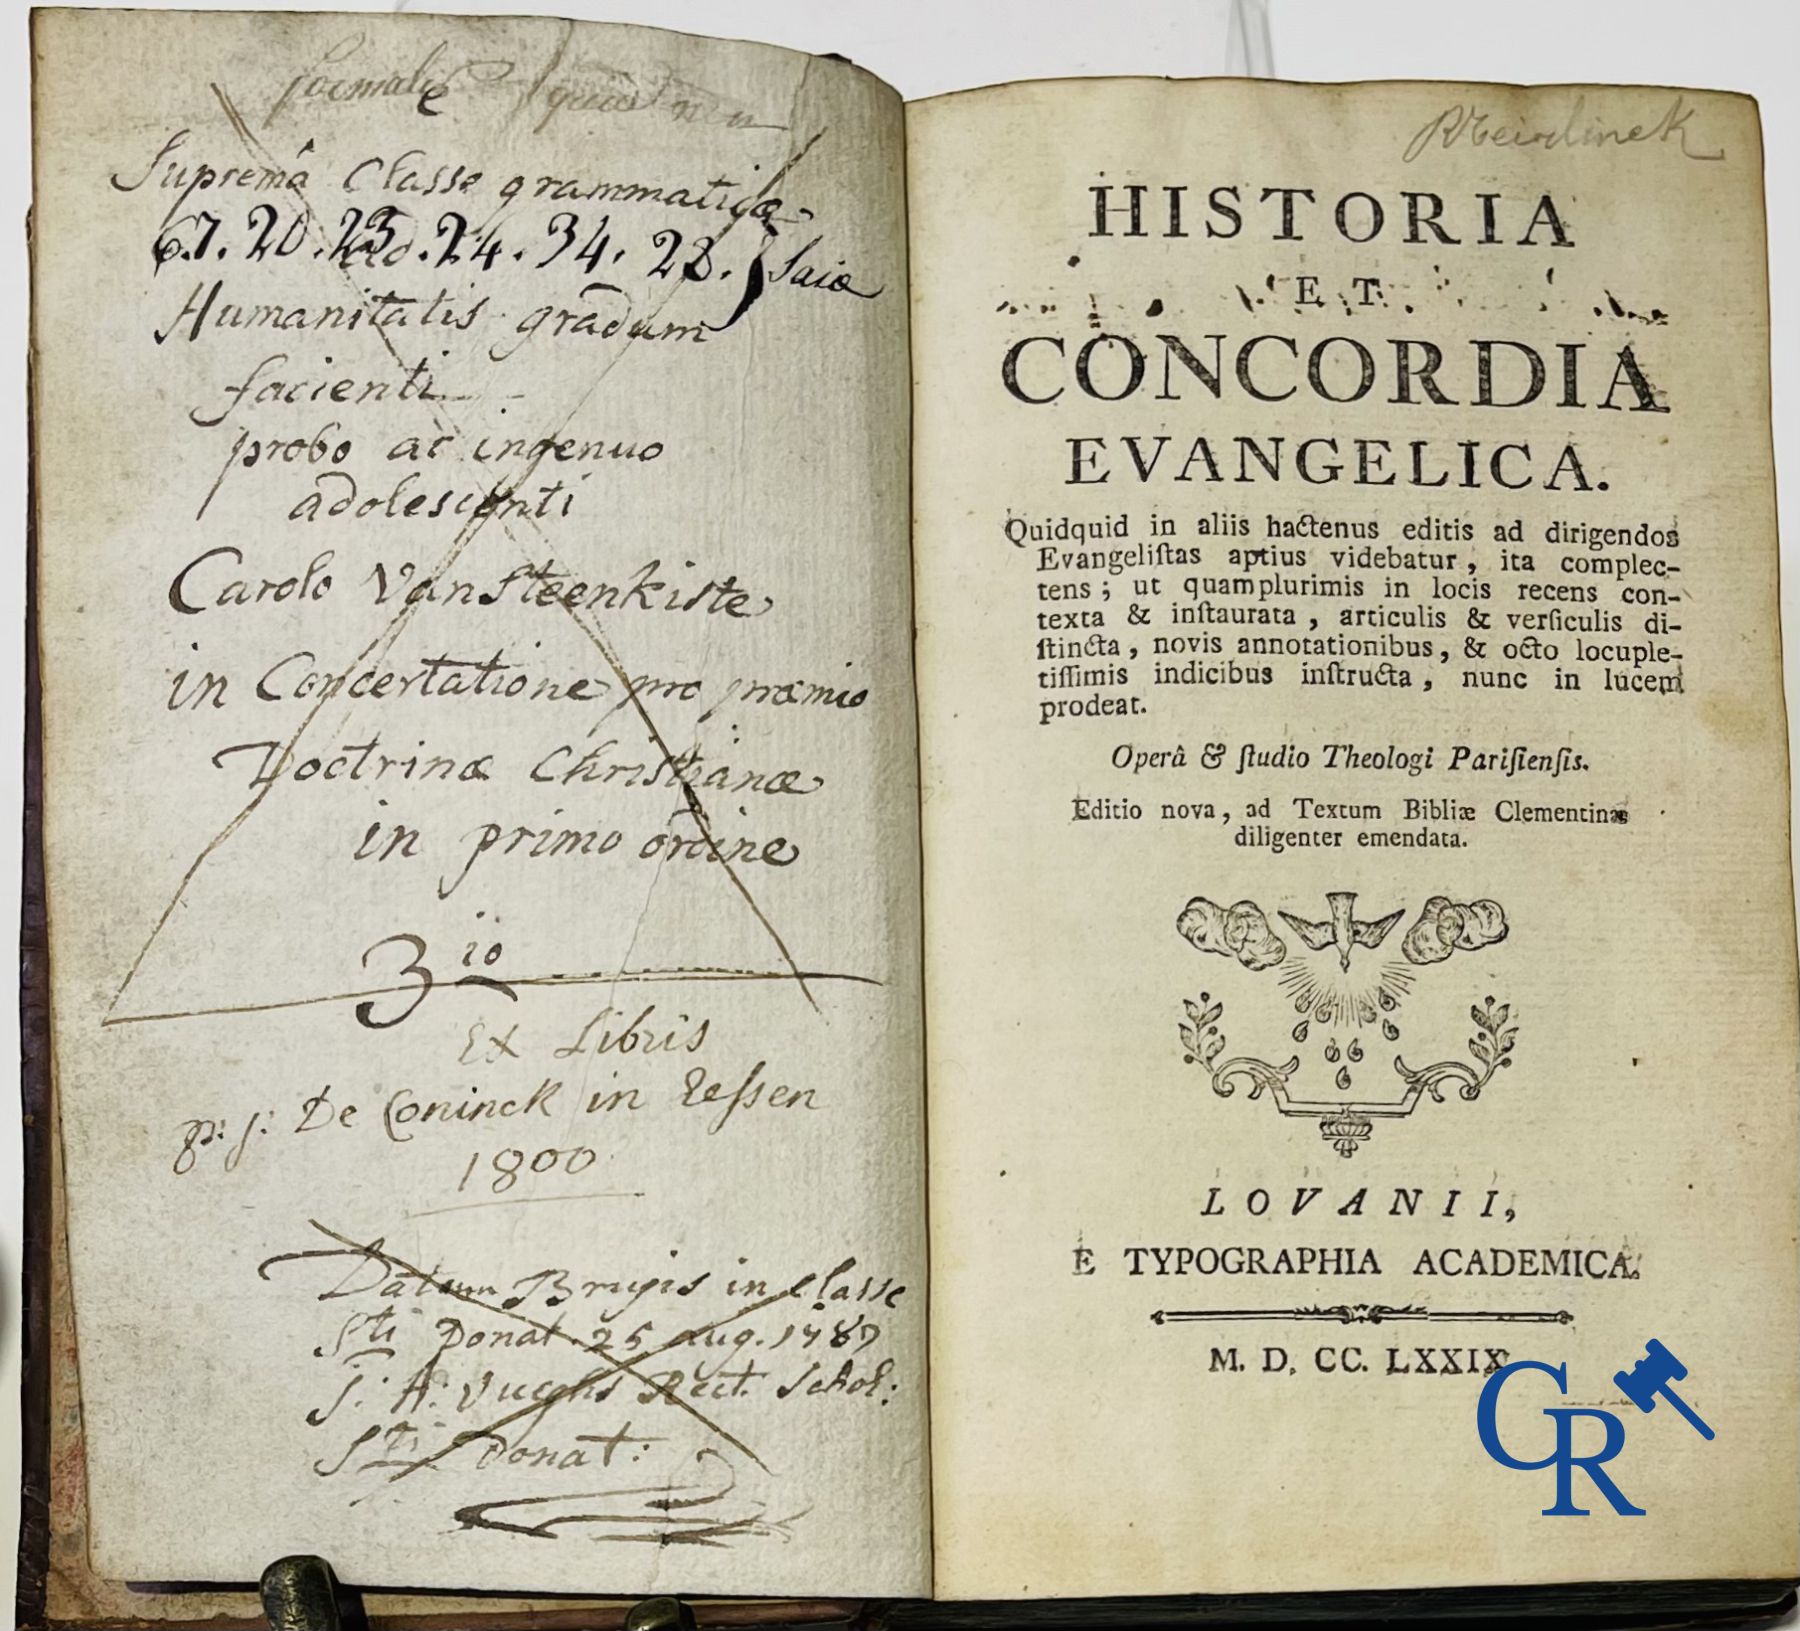 Supremâ Classe grammaticæ
6.7.20.23.24.34.28.
Humanitatis gradum
facienti
probo ac ingenuo
adolescenti
Carolo VanSteenkiste
in Concertatione pro præmio
Doctrinæ Christianæ
in primo ordine
3io
Ex Libris
p: j: De Coninck in Lessen
1800
Datum Brugis in classe
Sti Donat. 25 aug. 1787
J: A: Rect. Schol:
Sti Donat:
HISTORIA
ET
CONCORDIA
EVANGELICA.
Quidquid in aliis hactenus editis ad dirigendos
Evangeliſtas aptius videbatur, ita complec-
tens; ut quamplurimis in locis recens con-
texta & inſtaurata, articulis & verſiculis di-
ſtincta, novis annotationibus, & octo locuple-
tiſſimis indicibus inſtructa, nunc in lucem
prodeat.
Operâ & ſtudio Theologi Pariſienſis.
Editio nova, ad Textum Bibliæ Clementinæ
diligenter emendata.
LOVANII,
E TYPOGRAPHIA ACADEMICA.
M. D. CC. LXXIX.
CR